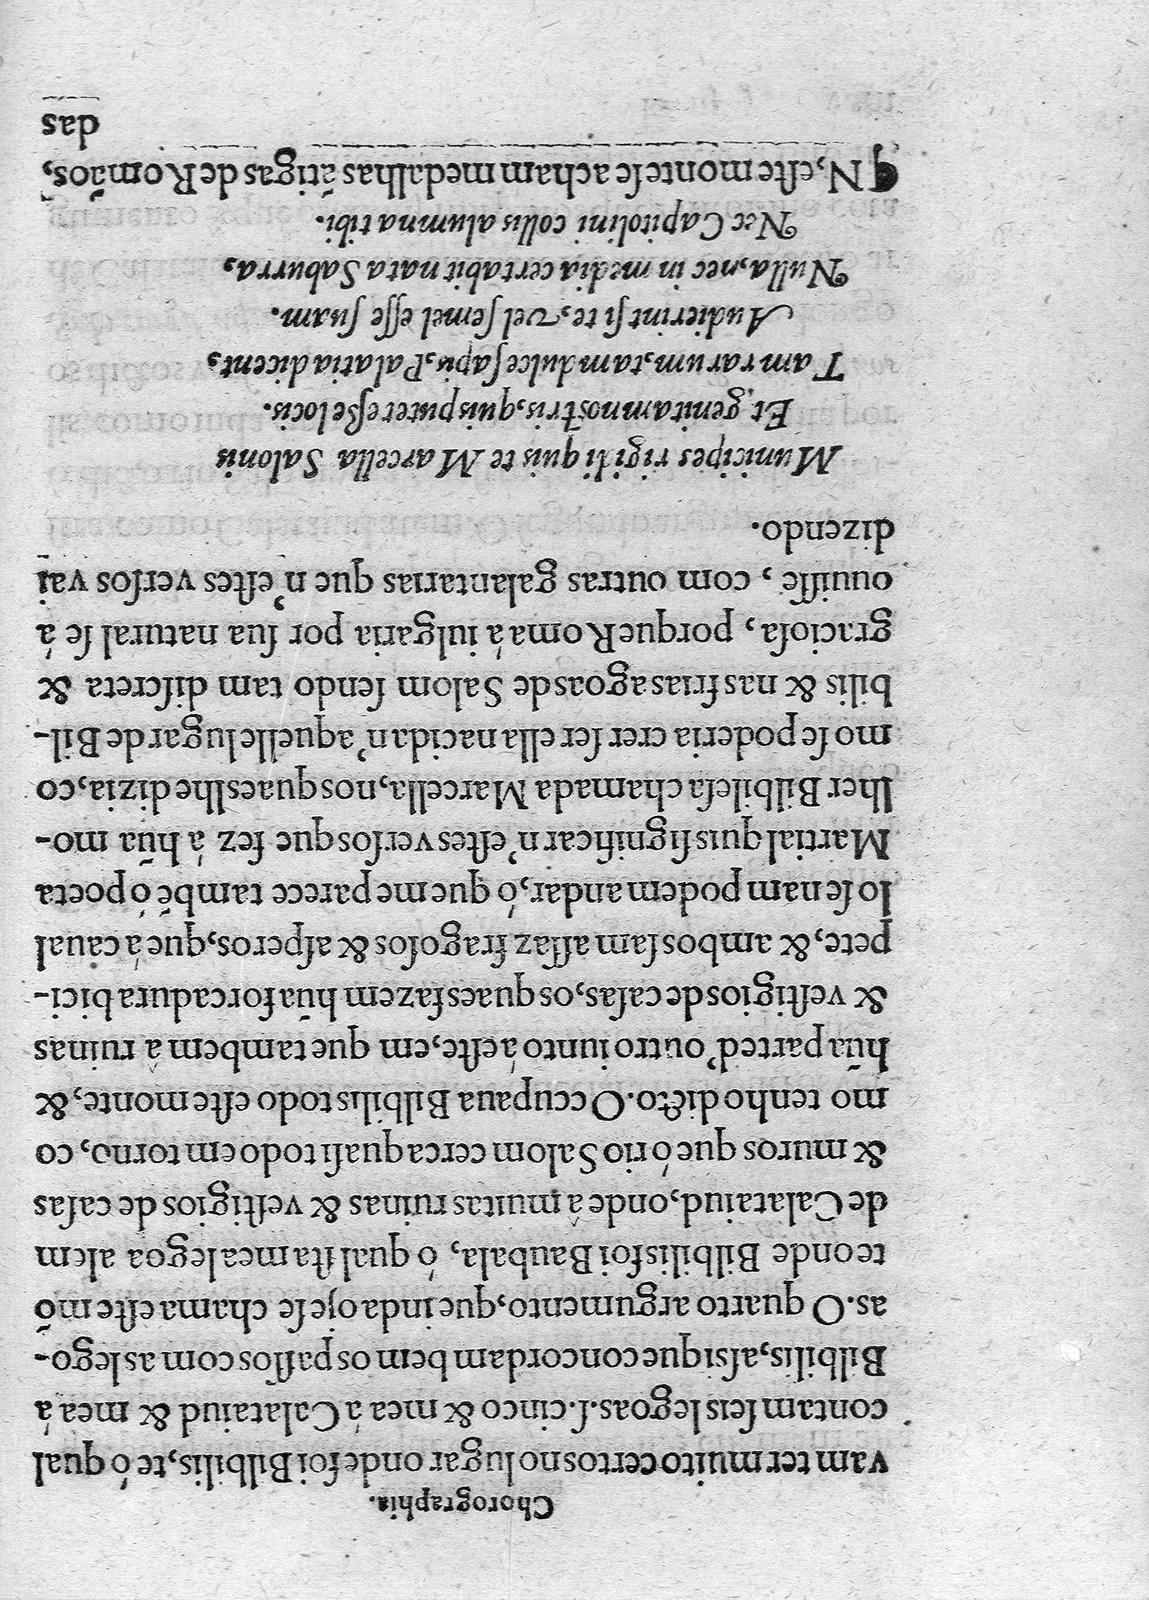 Chorographia.
vam ter muito certos no lugar onde foi Bilbilis, te ó qual
contam seis legoas.ſ.cinco & mea á Calataiud & mea á
Bilbilis, aſsi que concordam bem os paſſos com as lego-
as. O quarto argumento, que inda oje ſe chama eſte mõ
te onde Bilbilis foi Baubala, ó qual ſta mea legoa alem
de Calataiud, onde â muitas ruinas & veſtigios de caſas
& muros que ó rio Salom cerca quaſi todo em torno, co
mo tenho dicto. Occupaua Bilbilis todo eſte monte, &
hũa parte d'outro iunto á eſte, em que tambem â ruinas
& veſtigios de caſas, os quaes fazem hũa forcadura bici-
pete, & ambos ſam aſſaz fragoſos & aſperos, que á caual
lo ſe nam podem andar, ó que me parece tambẽ ó poeta
Martial quis ſignificar n'eſtes verſos que fez á hũa mo-
lher Bilbileſa chamada Marcella, nos quaes lhe dizia, co
mo ſe poderia crer ſer ella nacida n'aquelle lugar de Bil-
bilis & nas frias agoas de Salom ſendo tam diſcreta &
gracioſa, porque Roma á iulgaria por ſua natural ſe á
ouuiſſe, com outras galantarias que n'eſtes verſos vai
dizendo.
Municipes rigidi quis te Marcella Salonis
Et genitam noſtris, quis putet eßse locis.
Tam rarum, tam dulce ſapis, Palatia dicent,
Audierint ſi te, vel ſemel eſſe ſuam.
Nulla, nec in media certabit nata Saburra,
Nec Capitolini collis alumna tibi.
¶ N'eſte monte ſe acham medalhas ãtigas de Romãos,
das